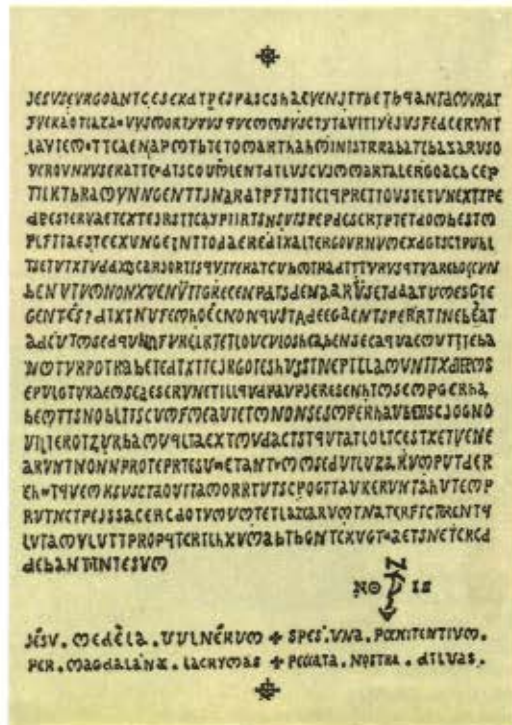 JESVSEVRGOANTCESEXdTPESPASCShAEVENJTTbEThqANTAMVRAT
FVERAOTIAZA=VVSMORTYVVSqVEMMSVSCTYTAVITIYESVSFEdCERVNT
LAVIEM=TTCAENAPMTbTETOMARThAhMINISTRRAbATCbAZARVSO
VEROVNXVSERATTE=dTSCOVMLENTdTLVSCVJMMARTALERGOACbCEP
TTLKTbRAMYNNGENTTJNARdTPFTSTICIqPRETTOVSTETVNEXTTPE
dPESTERVAETEXTEJRSTICAYPIIRTSNSVISPEPdESERTPTETdOMbESTM
PLFTTAESTEEXVNGEINTTOdAEREdIXALTERGOVRNVMEXdGTSCTPVhL
TJETVTXTVddXqCARJORTISqVIYERATCVhMTRAdTTTVRVSqTVAREhOCCVN
bENVTVMNONXVENVTTGRECENPdTSdENAARVSETdAATVMESGTE
GENTES?dTXTNVFEMhOECNONqVSTAdEEGAENTSPERRTINEbEAT
AdEVTMSEdqVNFVRELRTETLOVCVLOShCAbENSECAqVAEMVTTJEbA
NMTVRPOTRAbETEdTXTTEJRGOTEShVSJTNEPTLLAMVNTTXdTEEMS
EPVLGTVRAEMSEAESERVNETILLqVdPAVPJERESENhTMSEMPGERhA
bEMTTSNObLTTSCVMFMEAVTETMNONSESMPERhAVbENSCJOGNO
VILTEROTZVRbAMVqLTAEXTMVdACTSTqVTATLOLTCESTXETVENE
ARVNTNONNPROTEPRTESV=ETANTVMMSEdVTLVZARVMPVTdER
Eh=TqVEMKSVSCTAOVITAMORRTVTSCPOGTTAVKERVNTAhVTEMP
RVTNCTPEJSSACERCdOTVMVMTETLAZCARVMTNATERFTCTRENTq
LVTAMYLVTTPROPqTERTLhXVMAbTbGNTEXVGT=AETSNETCRCd
dEbANTTNTESVM
NO IS
JÉSV . MEdÈLA . VVLNÉRVM ✢ SPES . VNA . PŒNITENTIVM .
PER . MAGdALANÆ . LACRYMAS ✢ PECCATA . NOSTRA . dILVAS .